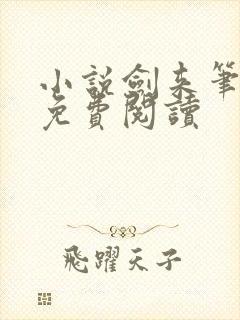 小說劍來筆
免費閱讀
飛躍天子